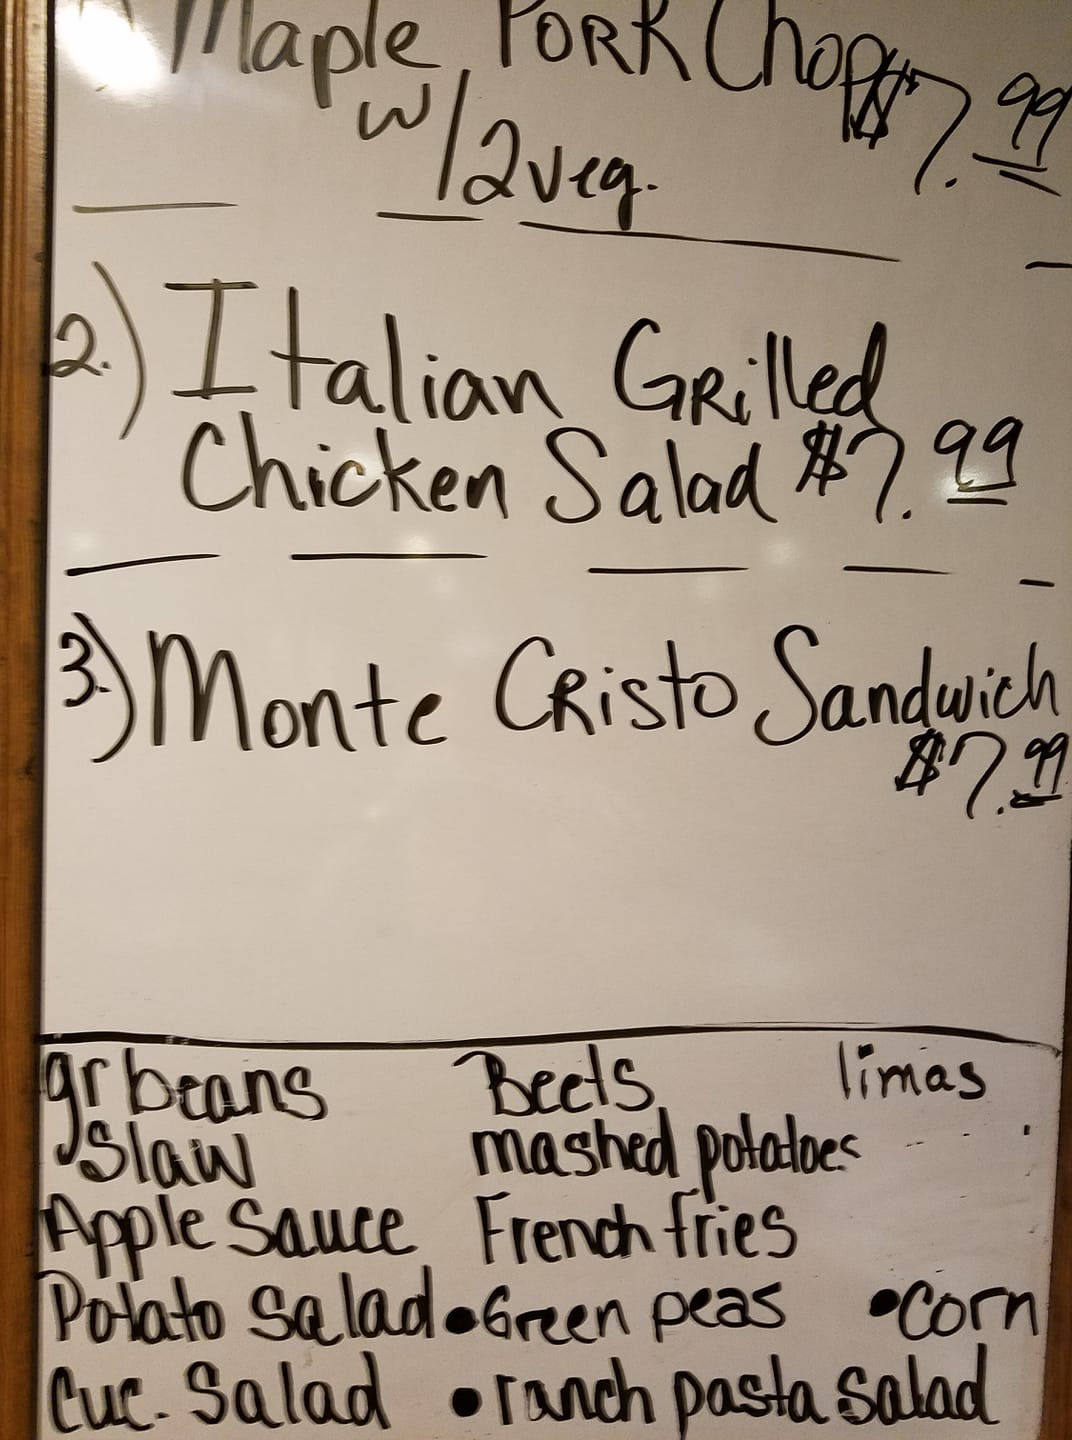 ) Maple Pork Chop $7.99
w/2veg.
2.) Italian Grilled
Chicken Salad $7.99
3.) Monte Cristo Sandwich
$7.99
gr beans Beets limas
Slaw mashed potatoes
Apple Sauce French fries
Potato Salad •Green peas •corn
Cuc. Salad •ranch pasta salad